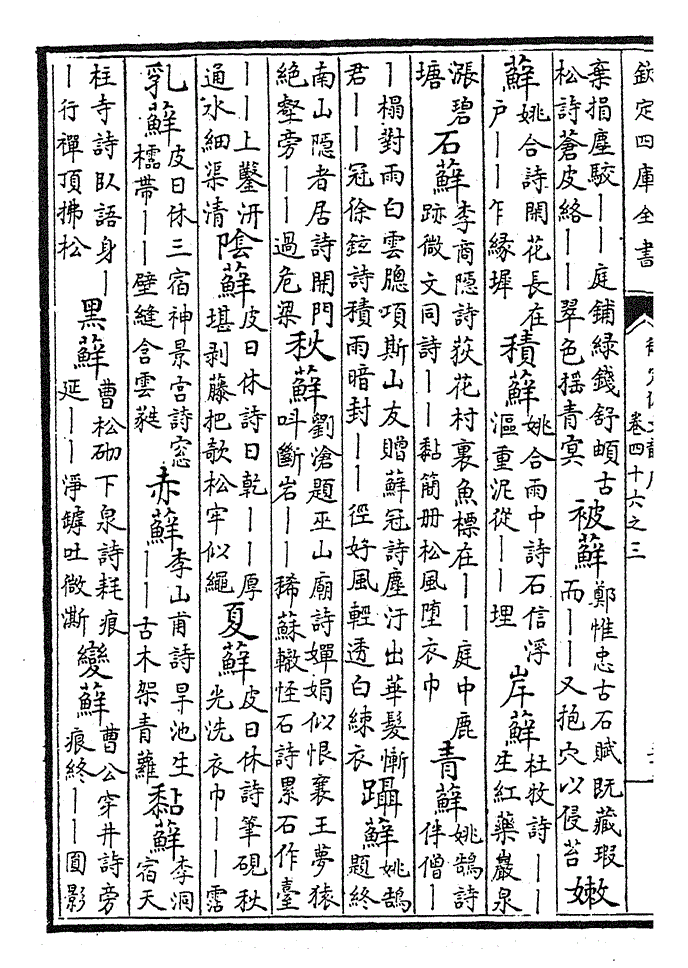 欽定四庫全書
卷四十六之三
棄捐塵駁丨丨庭鋪綠錢舒岫古
松詩蒼皮絡丨丨翠色揺青㝠
被蘚
鄭惟忠古石賦既藏瑕
而丨丨又抱穴以侵苔
嫩
蘚
姚合詩開花長在
户丨丨乍緣墀
積蘚
姚合雨中詩石信浮
漚重泥從丨丨埋
岸蘚
杜牧詩丨丨
生紅藥巖泉
漲碧
塘
石蘚
李商隱詩荻花村裏魚標在丨丨庭中鹿
跡微文同詩丨丨黏簡册松風墮衣巾
青蘚
姚鵠詩
伴僧丨
丨榻對雨白雲牕項斯山友贈蘚冠詩塵汙出華髮慚
君丨丨冠徐鉉詩積雨暗封丨丨徑好風輕透白練衣
躡蘚
姚鵠
題終
南山隱者居詩開門
絶壑旁丨丨過危梁
秋蘚
劉滄題巫山廟詩嬋娟似恨襄王夢猿
呌斷岩丨丨稀蘇轍怪石詩累石作臺
丨丨上鑿洴
通水細渠清
陰蘚
皮日休詩日乾丨丨厚
堪剥藤把欹松牢似繩
夏蘚
皮日休詩筆硯秋
光洗衣巾丨丨霑
乳蘚
皮日休三宿神景宫詩窓
櫺帶丨丨壁縫含雲蕤
赤蘚
李山甫詩旱池生
丨丨古木架青蘿
黏蘚
李洞
宿天
柱寺詩卧語身丨
丨行禪頂拂松
黑蘚
曹松砌下泉詩耗痕
延丨丨淨罅吐微澌
變蘚
曹公穿井詩旁
痕終丨丨圓影